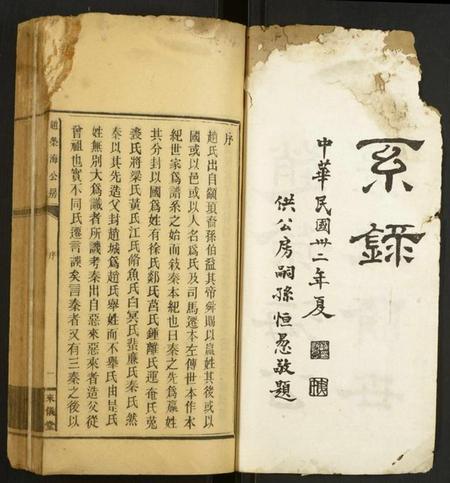 系錄
中華民國卅二年夏
供公房嗣孫恒惖敬題
序
趙氏出自顓頊裔孫伯益其帝舜賜以嬴姓其後或以
國或以邑或以人名爲氏及司馬遷本左傳世本作本
紀世家爲譜系之始而敘秦本紀也曰秦之先爲嬴姓
其分封以國爲姓有徐氏郯氏莒氏鍾離氏運奄氏菟
裘氏將梁氏黃氏江氏脩魚氏白冥氏蜚廉氏秦氏然
秦以其先造父封趙城爲趙氏舉姓而不舉氏由是氏
姓無別大爲識者所譏考秦出自惡來惡來者造父從
曾祖也實不同氏遷言誤矣言秦者又有三秦之後以
趙榮海公房
序
一
來儀堂